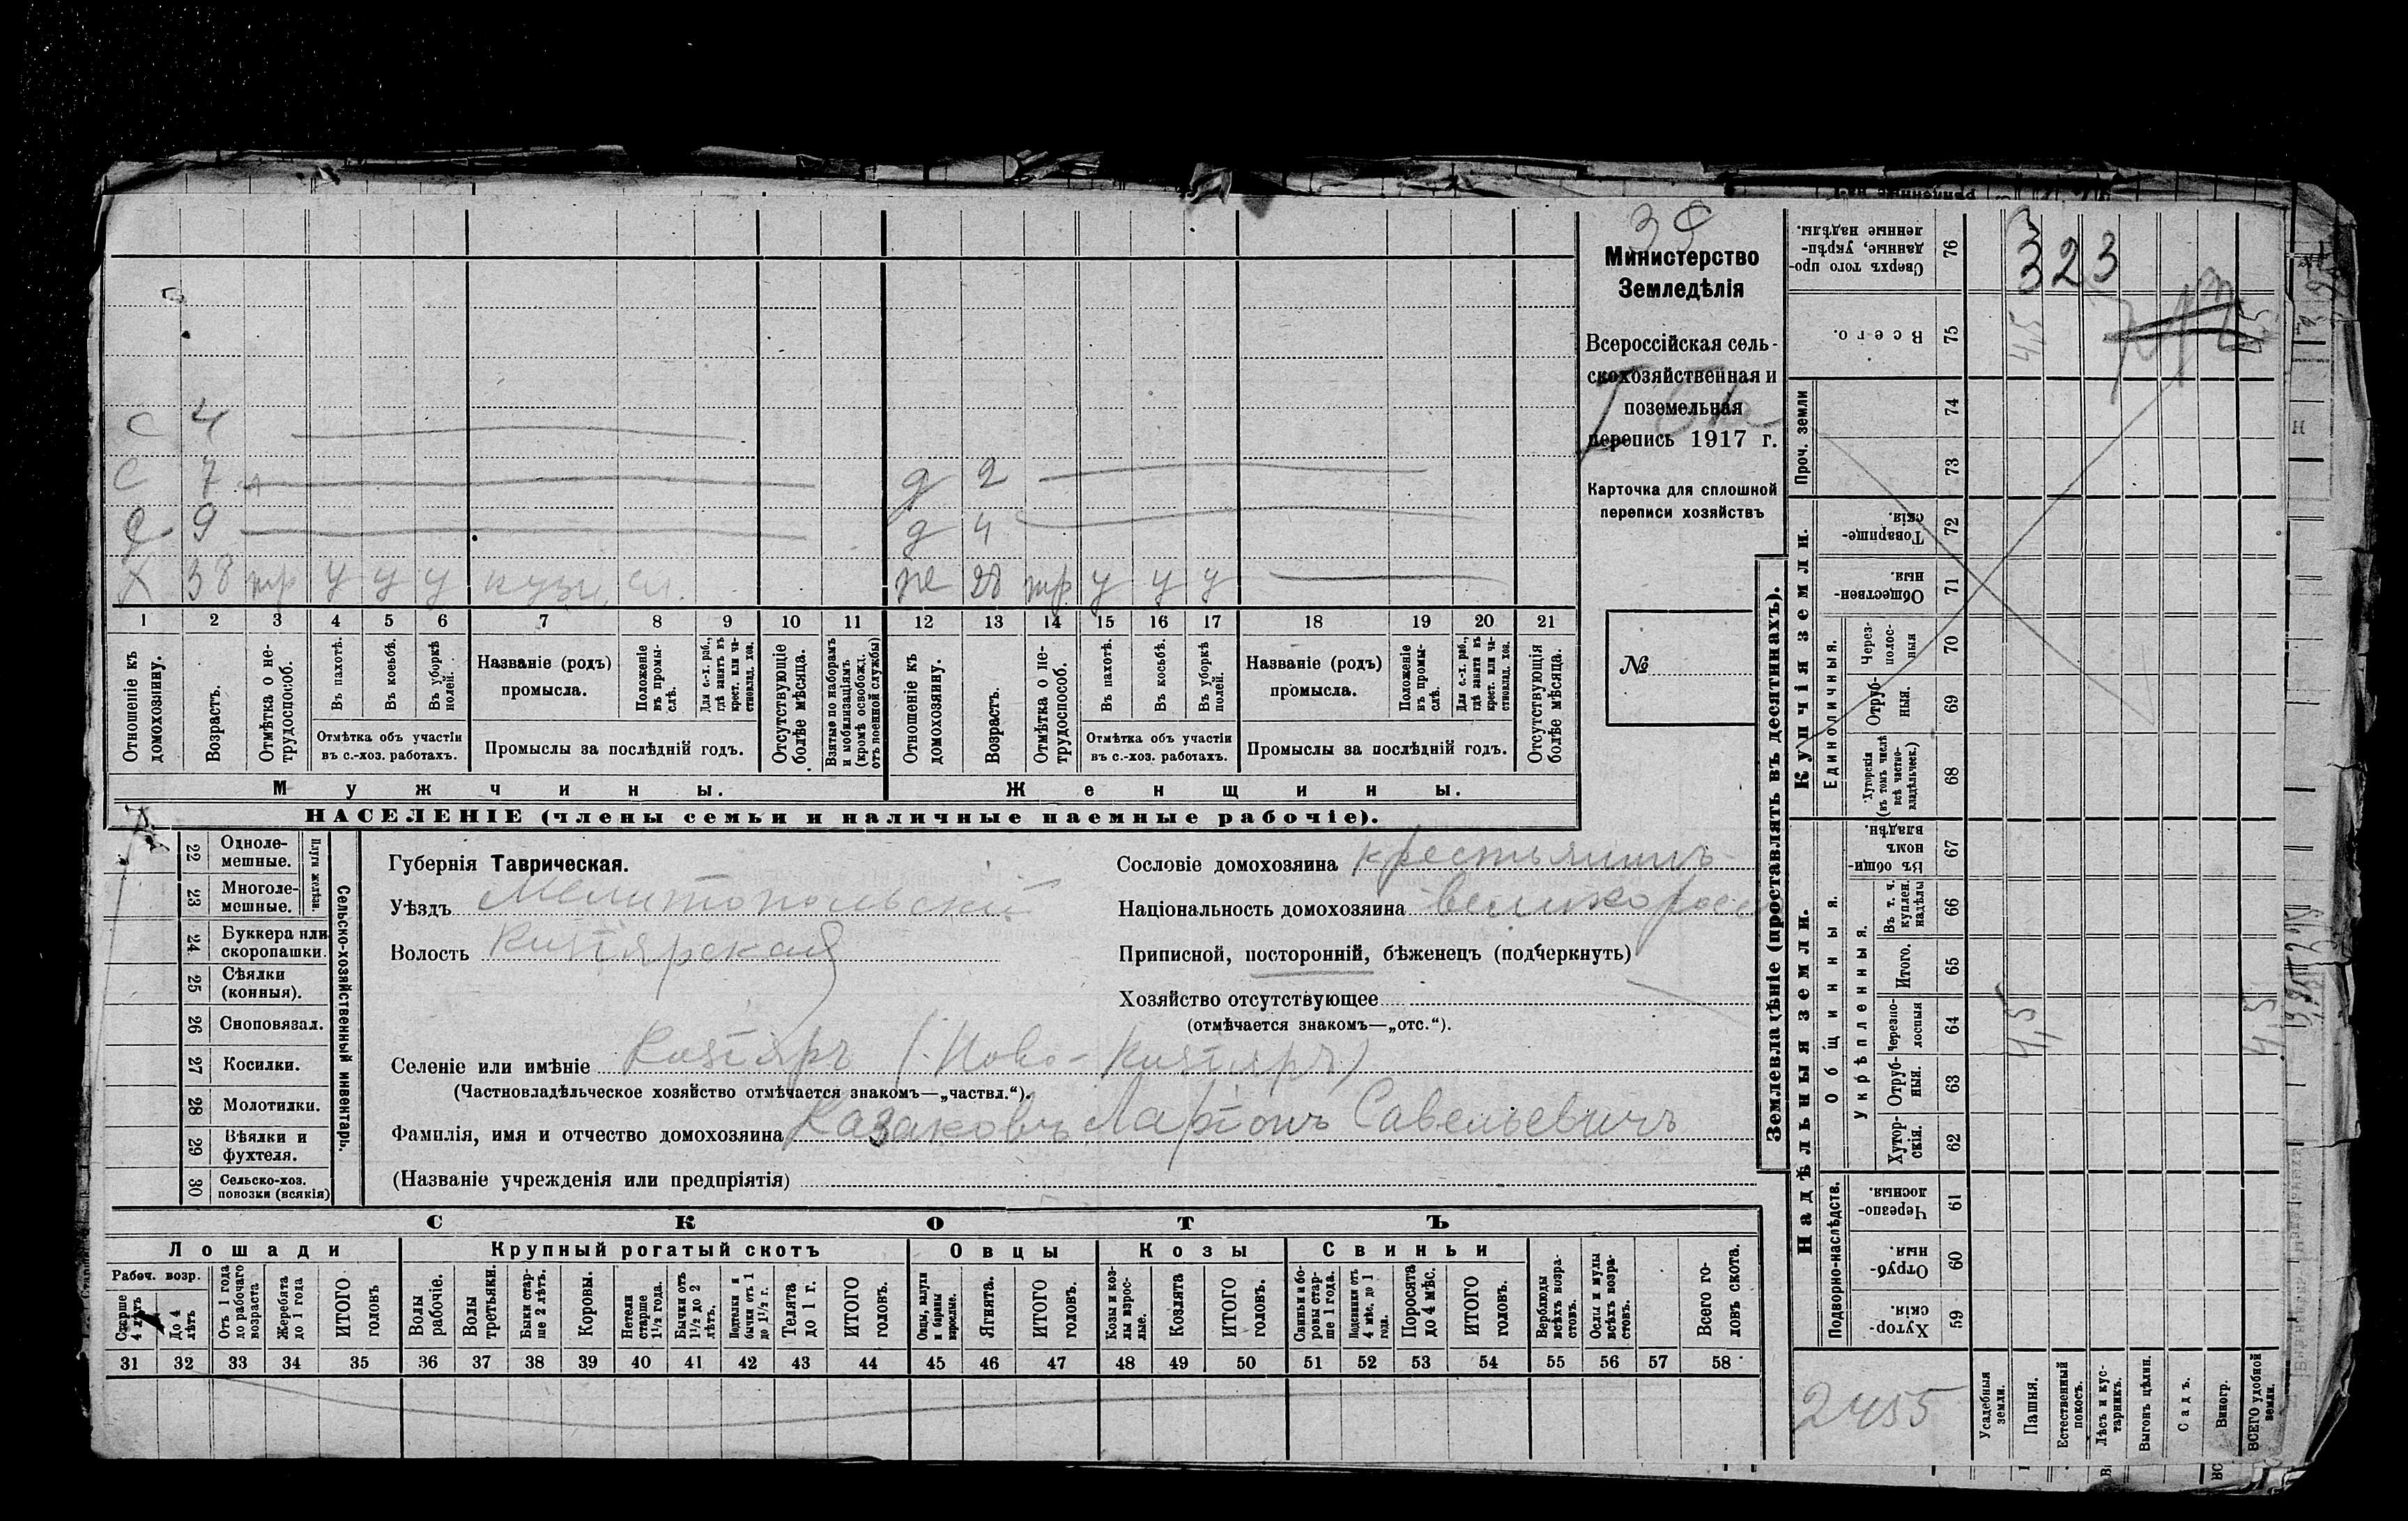 39
Министерство
Земледѣлія
Всероссійская сель-
скохозяйственная и
поземельная
перепись 1917 г.
Карточка для сплошной
переписи хозяйствъ
№
С 4
С 7 д 2
С 9 д 4
Х 38 тр у у у кузн. же 28 тр у у у
1 2 3 4 5 6 7 8 9 10 11 12 13 14 15 16 17 18 19 20 21
Отношеніе къ домохозяину.
Возрастъ.
Отмѣтка о не-трудоспособ.
Въ пахотѣ.
Въ косьбѣ.
Въ уборкѣ полей.
Отмѣтка объ участіи
въ с.-хоз. работахъ.
Названіе (родъ)
промысла.
Положеніе въ промы-слѣ.
Для с.-х. раб., гдѣ занятъ въ крест. или ча-стновлад. хоз.
Промыслы за послѣдній годъ.
Отсутствующіе болѣе мѣсяца.
Взятые по наборамъ и мобилизаціямъ (кромѣ освобожд. отъ военной службы)
Отношеніе къ домохозяину.
Возрастъ.
Отмѣтка о не-трудоспособ.
Въ пахотѣ.
Въ косьбѣ.
Въ уборкѣ полей.
Отмѣтка объ участіи
въ с.-хоз. работахъ.
Названіе (родъ)
промысла.
Положеніе въ промы-слѣ.
Для с.-х. раб., гдѣ занята въ крест. или ча-стновлад. хоз.
Промыслы за послѣдній годъ.
Отсутствующія болѣе мѣсяца.
Мужчины. Женщины.
НАСЕЛЕНІЕ (члены семьи и наличные наемные рабочіе).
Сельско-хозяйственный инвентарь.
Плуги желѣзн.
22 Одноле-мешные.
23 Многоле-мешные.
24 Буккера или скоропашки.
25 Сѣялки (конныя).
26 Сноповязал.
27 Косилки.
28 Молотилки.
29 Вѣялки и фухтеля.
30 Сельско-хоз. повозки (всякія)
Губернія Таврическая.
Уѣздъ Мелитопольскій
Волость Кизіярская
Сословіе домохозяина крестьянинъ
Національность домохозяина великоросс
Приписной, посторонній, бѣженецъ (подчеркнуть)
Хозяйство отсутствующее
(отмѣчается знакомъ—„отс.“).
Селеніе или имѣніе Кизіяръ (Ново-Кизіяръ)
(Частновладѣльческое хозяйство отмѣчается знакомъ—„частвл.“).
Фамилія, имя и отчество домохозяина Казаковъ Ларіонъ Савельевичъ
(Названіе учрежденія или предпріятія)
СКОТЪ
Лошади Крупный рогатый скотъ Овцы Козы Свиньи
Рабоч. возр.
Старше 4 лѣтъ
До 4 лѣтъ
Отъ 1 года до рабочаго возраста
Жеребята до 1 года
ИТОГО головъ
Волы рабочіе.
Волы третьяки.
Быки стар-ше 2 лѣтъ.
Коровы.
Нетели старше 1½ года.
Бычки отъ 1½ до 2 лѣтъ.
Подтелки и бычки отъ 1 до 1½ г.
Телята до 1 г.
ИТОГО головъ.
Овцы, валухи и бараны взрослые.
Ягнята.
ИТОГО головъ.
Козы и коз-лы взрос-лые.
Козлята
ИТОГО головъ.
Свиньи и бо-ровы стар-ше 1 года.
Подсвинки отъ 4 мѣс. до 1 года.
Поросята до 4 мѣс.
ИТОГО головъ.
Верблюды всѣхъ возра-стовъ.
Ослы и мулы всѣхъ возра-стовъ.
Всего го-ловъ скота.
31 32 33 34 35 36 37 38 39 40 41 42 43 44 45 46 47 48 49 50 51 52 53 54 55 56 57 58
Землевладѣніе (проставлять въ десятинахъ).
Сверхъ того про-данные, укрѣп-ленные надѣлы. 76 323
Всего. 75 4,5 4,5
Проч. земли 74
73
Купчія земли.
Товарище-скія. 72
Обществен-ныя. 71
Единоличныя.
Через-полос-ныя 70
Отруб-ныя. 69
Хуторскія (въ томъ числѣ всѣ частно-владѣльческ.) 68
Надѣльныя земли.
Общинныя.
Въ общи-номъ владѣн. 67
Укрѣпленныя.
Въ т. ч. куплен. надѣлы 66
Итого. 65
Черезпо-лосныя 64 4,5 4,5
Отруб-ныя. 63
Хутор-скія. 62
Подворно-наслѣдств.
Черезпо-лосныя. 61
Отруб-ныя. 60
Хутор-скія. 59
2455
Усадебныя земли.
Пашня.
Естественный покосъ.
Лѣсъ и кус-тарникъ.
Выгонъ цѣлин.
Садъ.
Виногр.
ВСЕГО удобной земли.